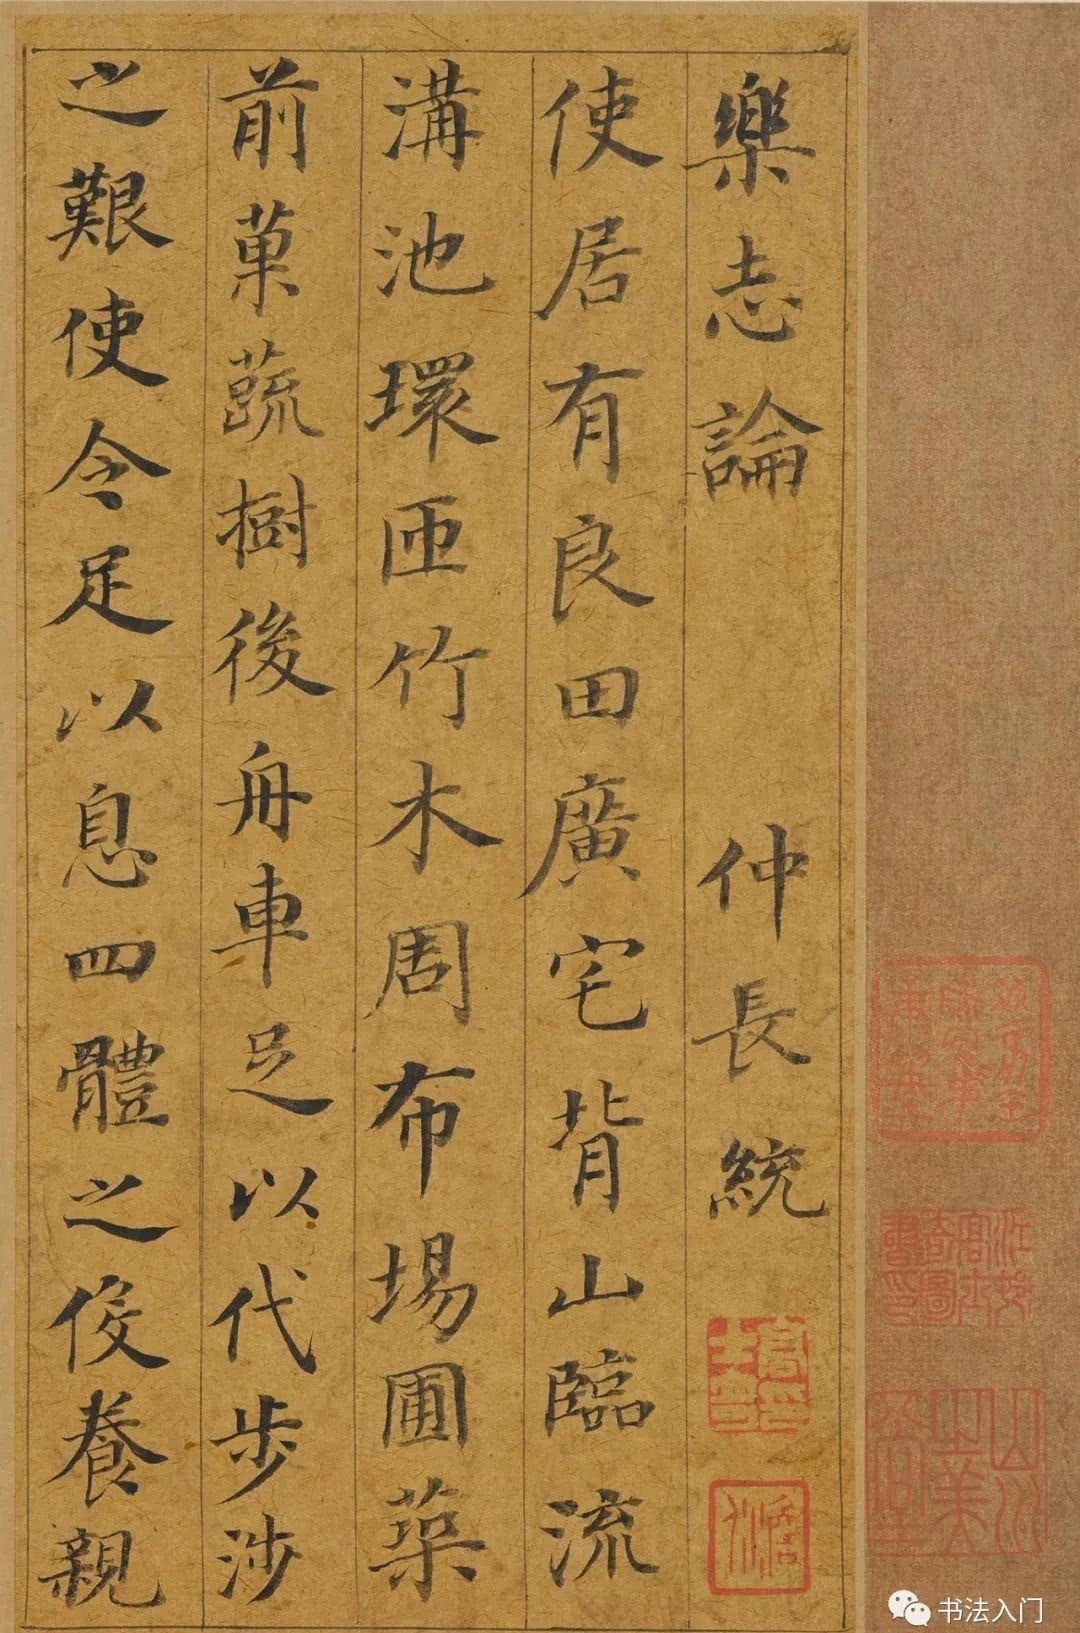 樂志論 仲長統
使居有良田廣宅背山臨流
溝池環匝竹木周布場圃築
前菓蔬樹後舟車足以代步涉
之艱使令足以息四體之伇養親
书法入门